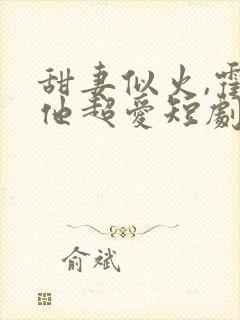 甜妻似火,霍
他超爱短劇
俞斌